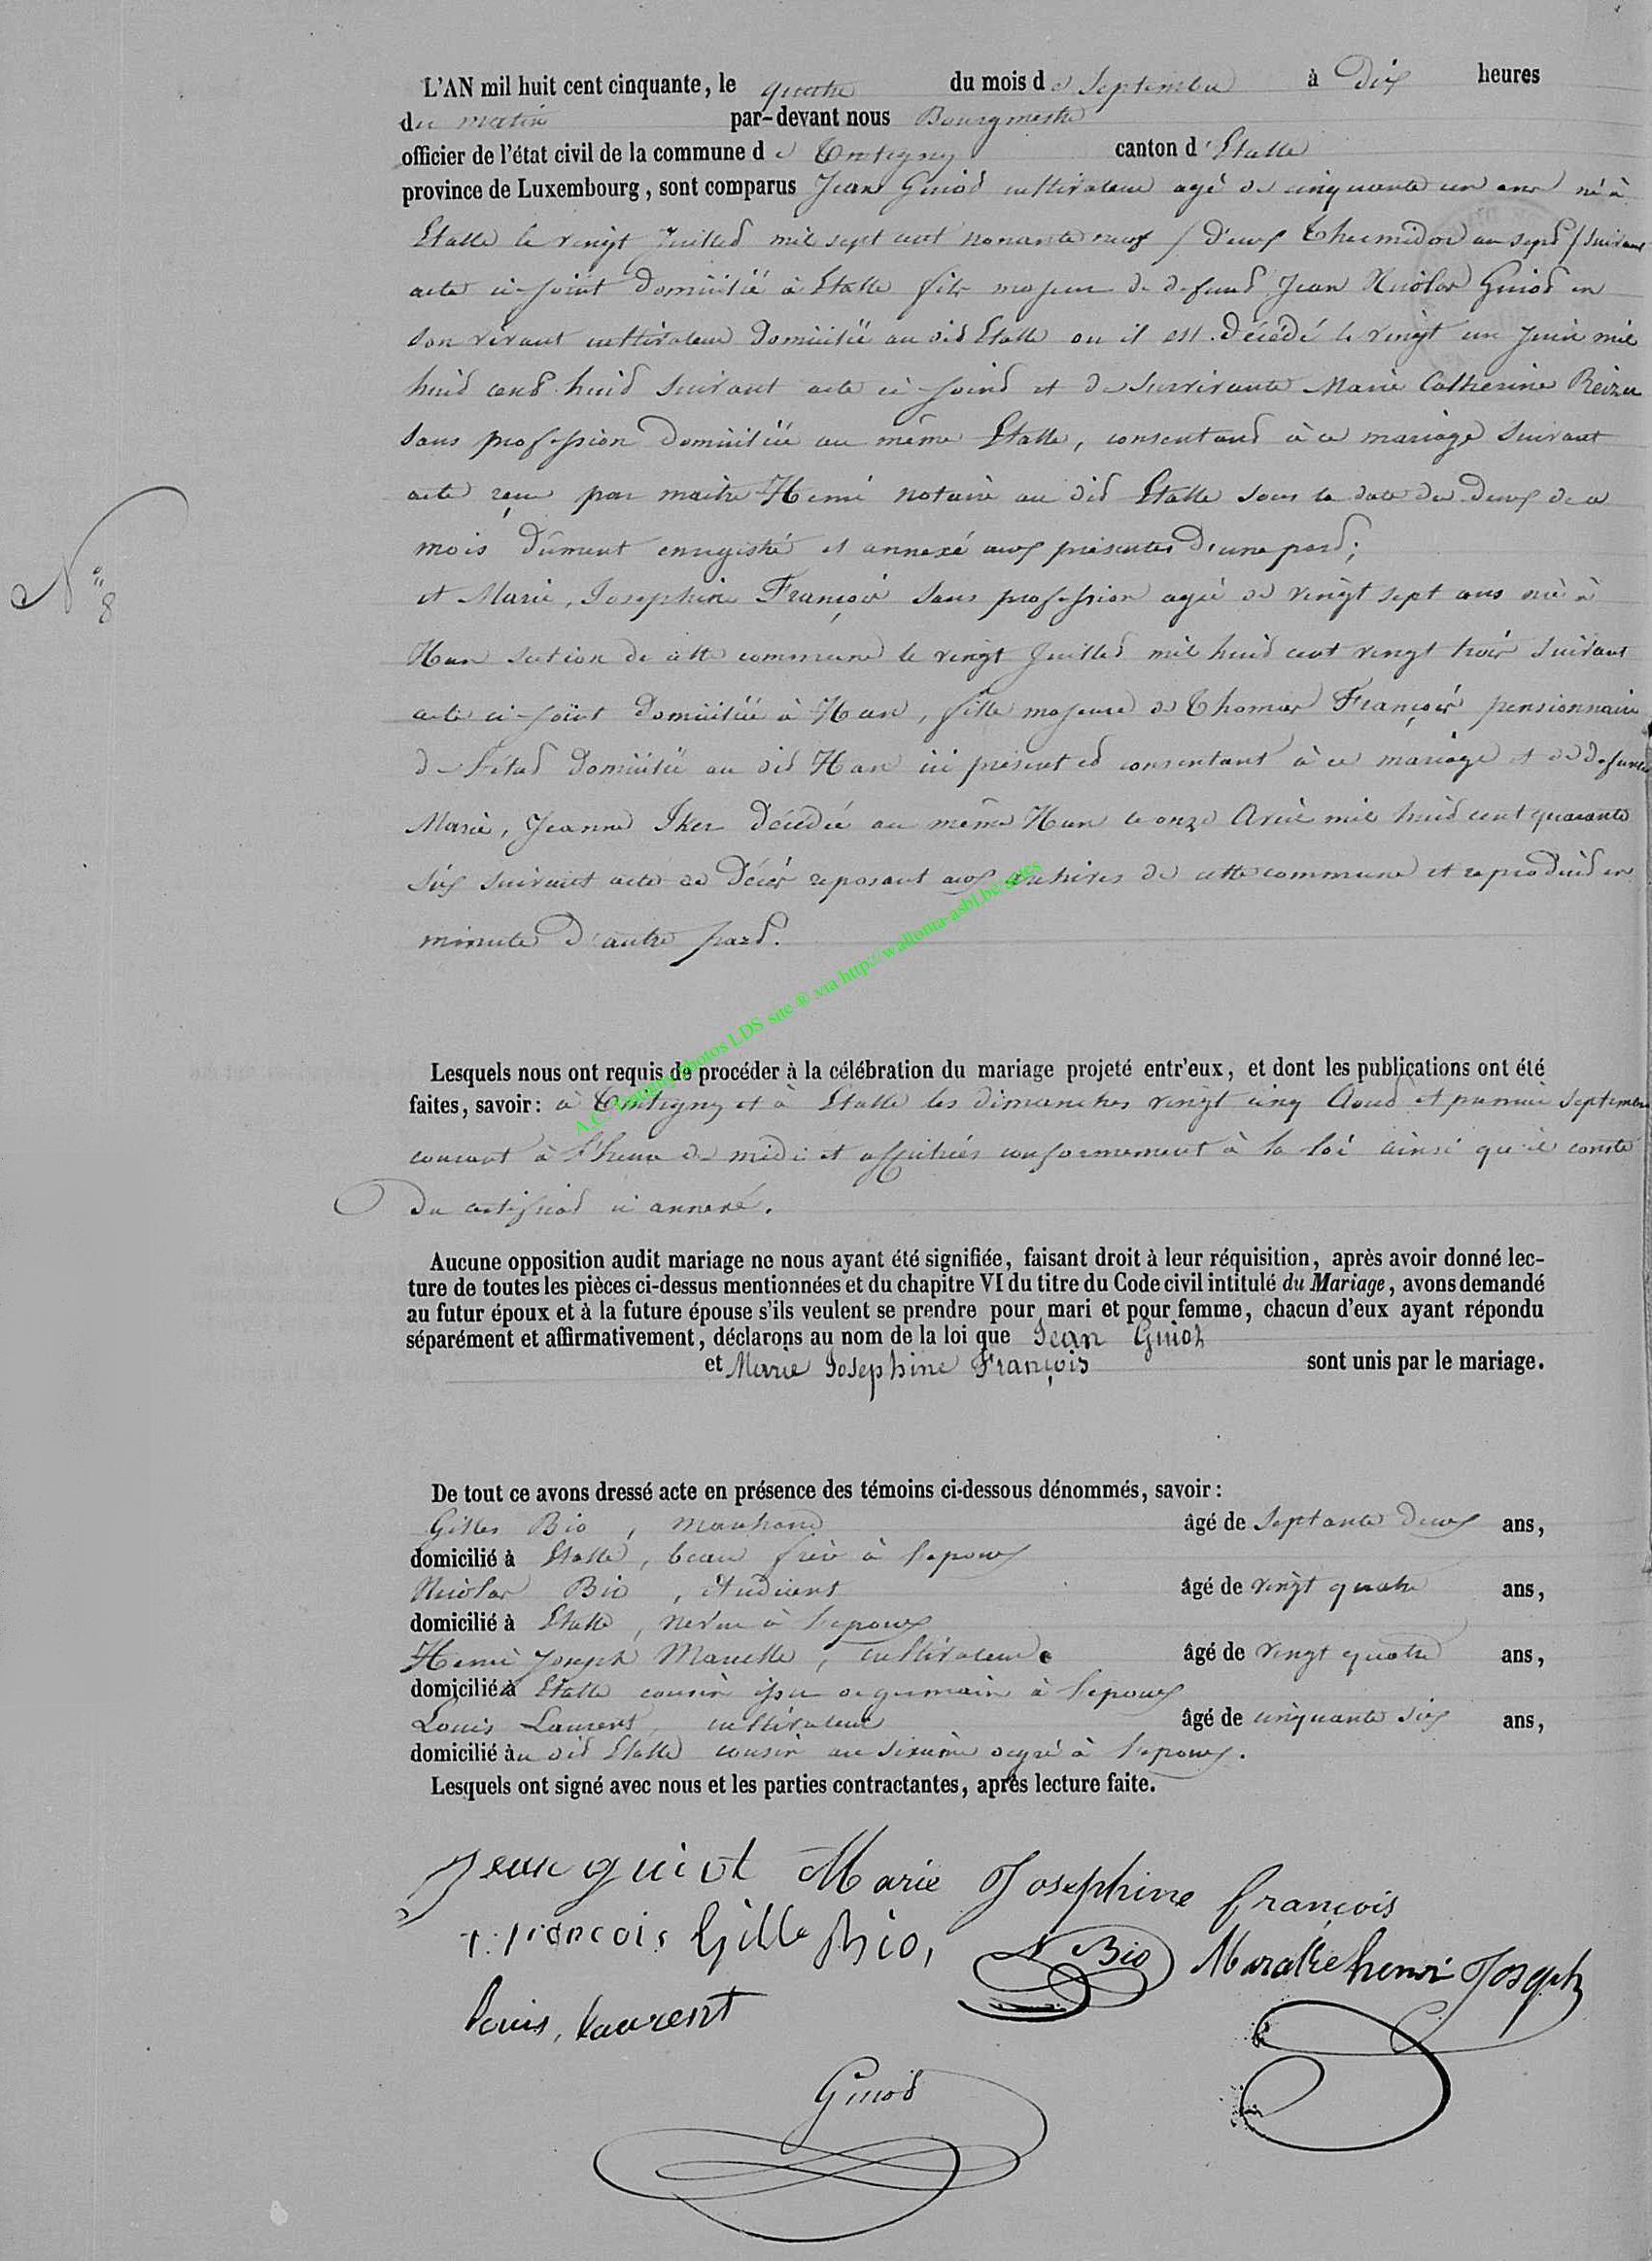 L'AN mil huit cent cinquante, le quatre du mois de Septembre à Dix heures
du matin par-devant nous Bourgmestre
officier de l'état civil de la commune de Tintigny canton d'Etalle
province de Luxembourg, sont comparus Jean Guiod cultivateur agé de cinquante un ans né à
Etalle le vingt Juilled mil sept cent nonante neuf / Deux Thermidor an sept / suivant
acte ci-joint Domicilié à Etalle fils majeur de defund Jean Nicolas Guiod en
son vivant cultivateur Domicilié au did Etalle ou il est Décédé le vingt un Juin mil
huid cend huid suivant acte ci-joind et de survivante Marie Catherine
sans profession Domiciliée au même Etalle, consentand à ce mariage suivant
acte reçu par maitre Henri notaire au did Etalle sous la date du Deux de ce
mois Dûment enregistré et annexé aux présentes D'une pard;
et Marie, Josephine François sans profession agée de vingt sept ans née à
Han section de cette commune le vingt Juilled mil huid cent vingt trois suivant
acte ci-joint Domiciliée à Han, fille majeure de Thomas François pensionnaire
de l'etad Domicilié au did Han ici présent et consentant à ce mariage et de defunte
Marie, Jeanne Iker Décédée au même Han le onze Avril mil huid cent quarante
six suivant acte de Décès reposant aux archives de cette commune et reproduid en
minute D'autre pard.
N° 8
A.C. Tintigny photos LDS site ® via http://wallonia-asbl.be sites
Lesquels nous ont requis de procéder à la célébration du mariage projeté entr'eux, et dont les publications ont été
faites, savoir: à Tintigny et à Etalle les dimanches vingt cinq Aoud et premier Septembre
courant à l'heure de midi et affichées conformement à la loi ainsi qu'il conste
Du certificad ci annexé.
Aucune opposition audit mariage ne nous ayant été signifiée, faisant droit à leur réquisition, après avoir donné lec-
ture de toutes les pièces ci-dessus mentionnées et du chapitre VI du titre du Code civil intitulé du Mariage, avons demandé
au futur époux et à la future épouse s'ils veulent se prendre pour mari et pour femme, chacun d'eux ayant répondu
séparément et affirmativement, déclarons au nom de la loi que Jean Guiot
et Marie Josephine François sont unis par le mariage.
De tout ce avons dressé acte en présence des témoins ci-dessous dénommés, savoir:
Gilles Bio, marchand âgé de septante deux ans,
domicilié à Etalle, beau frère à l'epoux
Nicolas Bio, étudiant âgé de vingt quatre ans,
domicilié à Etalle, neveu à l'epoux
Henri Joseph Marelle, cultivateur âgé de vingt quatre ans,
domicilié à Etalle cousin issu de germain à l'epoux
Louis Laurent, cultivateur âgé de cinquante six ans,
domicilié au did Etalle cousin au sixième degré à l'epoux.
Lesquels ont signé avec nous et les parties contractantes, après lecture faite.
Jean guiot Marie Josephine françois
T. françois Gille Bio, N Bio Maralle henri Joseph
Louis, Laurent
Guiod